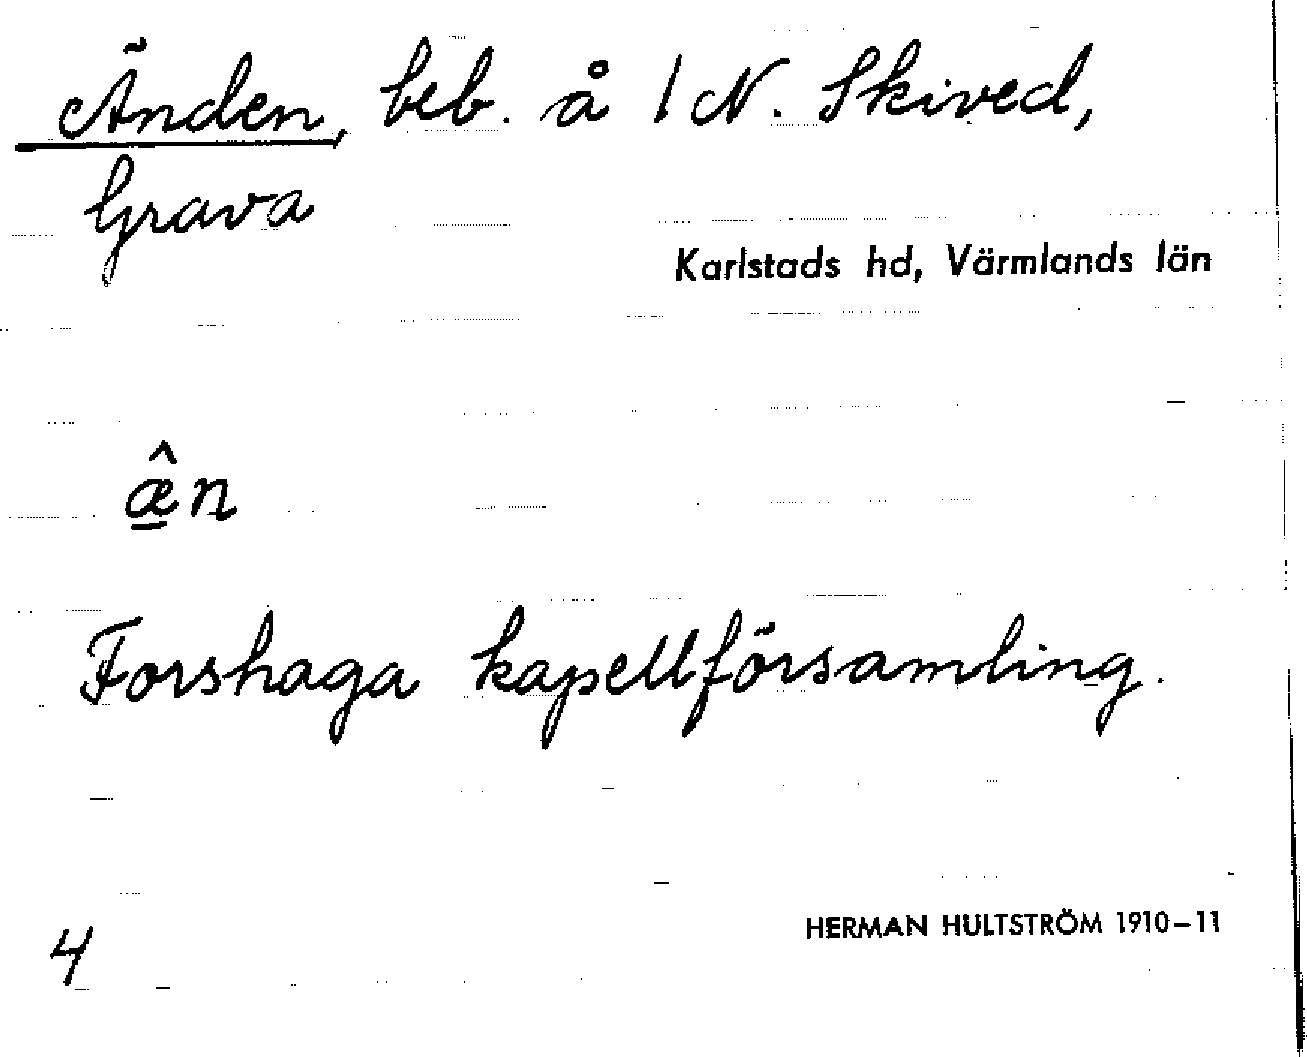 Änden, beb. å 1 N. Skived,
Grava
Karlstads hd, Värmlands län
æ̱̂n
Forshaga kapellförsamling.
4
HERMAN HULTSTRÖM 1910–11